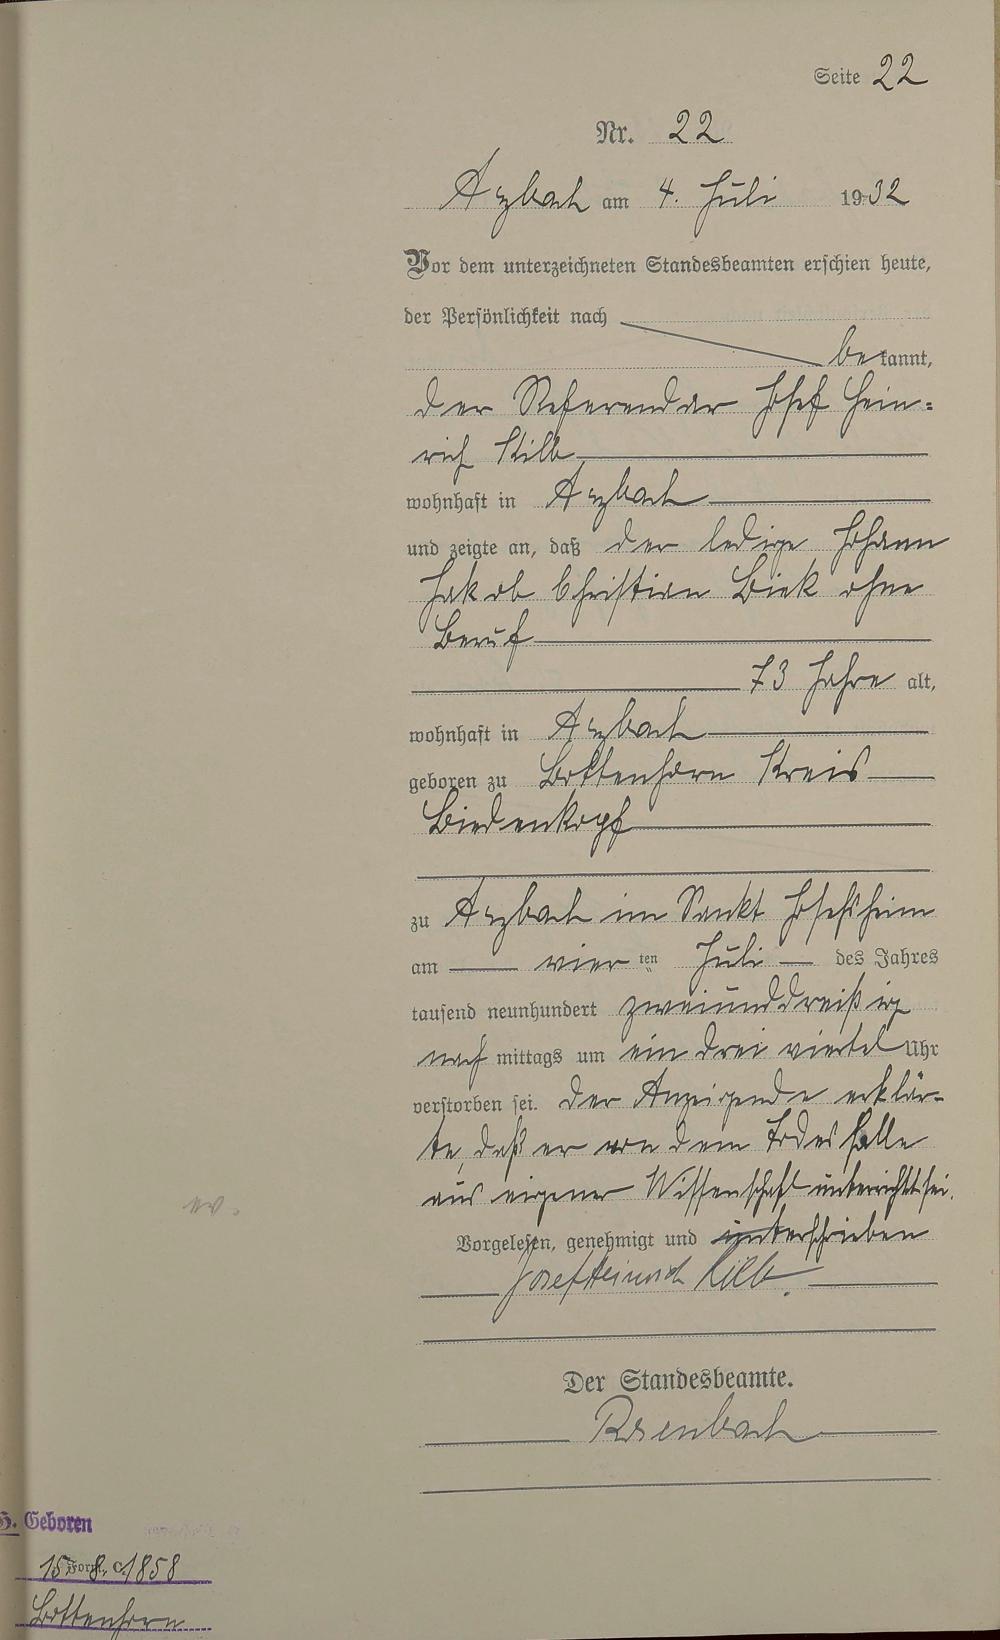 Seite 22
Nr. 22
Arzbach am 4. Juli 1932
Vor dem unterzeichneten Standesbeamten erschien heute,
der Persönlichkeit nach
bekannt,
der Referendar Josef Hein=
rich Kilb
wohnhaft in Arzbach
und zeigte an, daß der ledige Johann
Jakob Christian Biek ohne
Beruf
73 Jahre alt,
wohnhaft in Arzbach
geboren zu Bottenhorn Kreis
Biedenkopf
zu Arzbach im Sankt Josefsheim
am vierten Juli des Jahres
tausend neunhundert zweiunddreißig
nachmittags um ein drei viertel Uhr
verstorben sei. Der Anzeigende erklär-
te, daß er von dem Todesfalle
aus eigener Wissenschaft unterrichtet sei.
Vorgelesen, genehmigt und unterschrieben
Josef Heinrich Kilb.
Der Standesbeamte.
Rosenbach
ev.
H. Geboren
15. 8. 1858
Bottenhorn